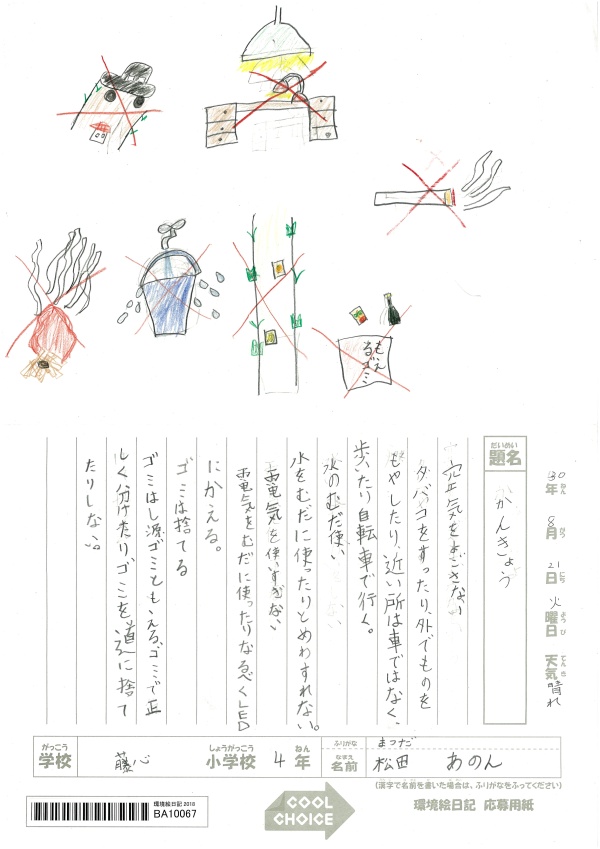 もえ
るゴミ
30年ねん8月がつ21日にち火曜日ようび天気てんき晴れ
だいめい
題名
かんきょう
空気をよごさない
タバコをすったり、外でものを
もやしたり、近い所は車ではなく、
歩いたり自転車で行く。
水のむだ使い
水をむだに使ったりとめわすれない。
お電気を使いすぎない
お電気をむだに使ったりなるべくLED
にかえる。
ゴミは捨てる
ゴミはし源ゴミともえる、ゴミで正
しく分けたりゴミを道ろに捨て
たりしない。
がっこう
学校
藤心
しょうがっこう
小学校
4
ねん
年
ふりがな
まつだ
なまえ
名前
松田 あのん
(漢字で名前を書いた場合は、ふりがなをふってください)
環境絵日記2018
BA10067
COOL
CHOICE
環境絵日記 応募用紙